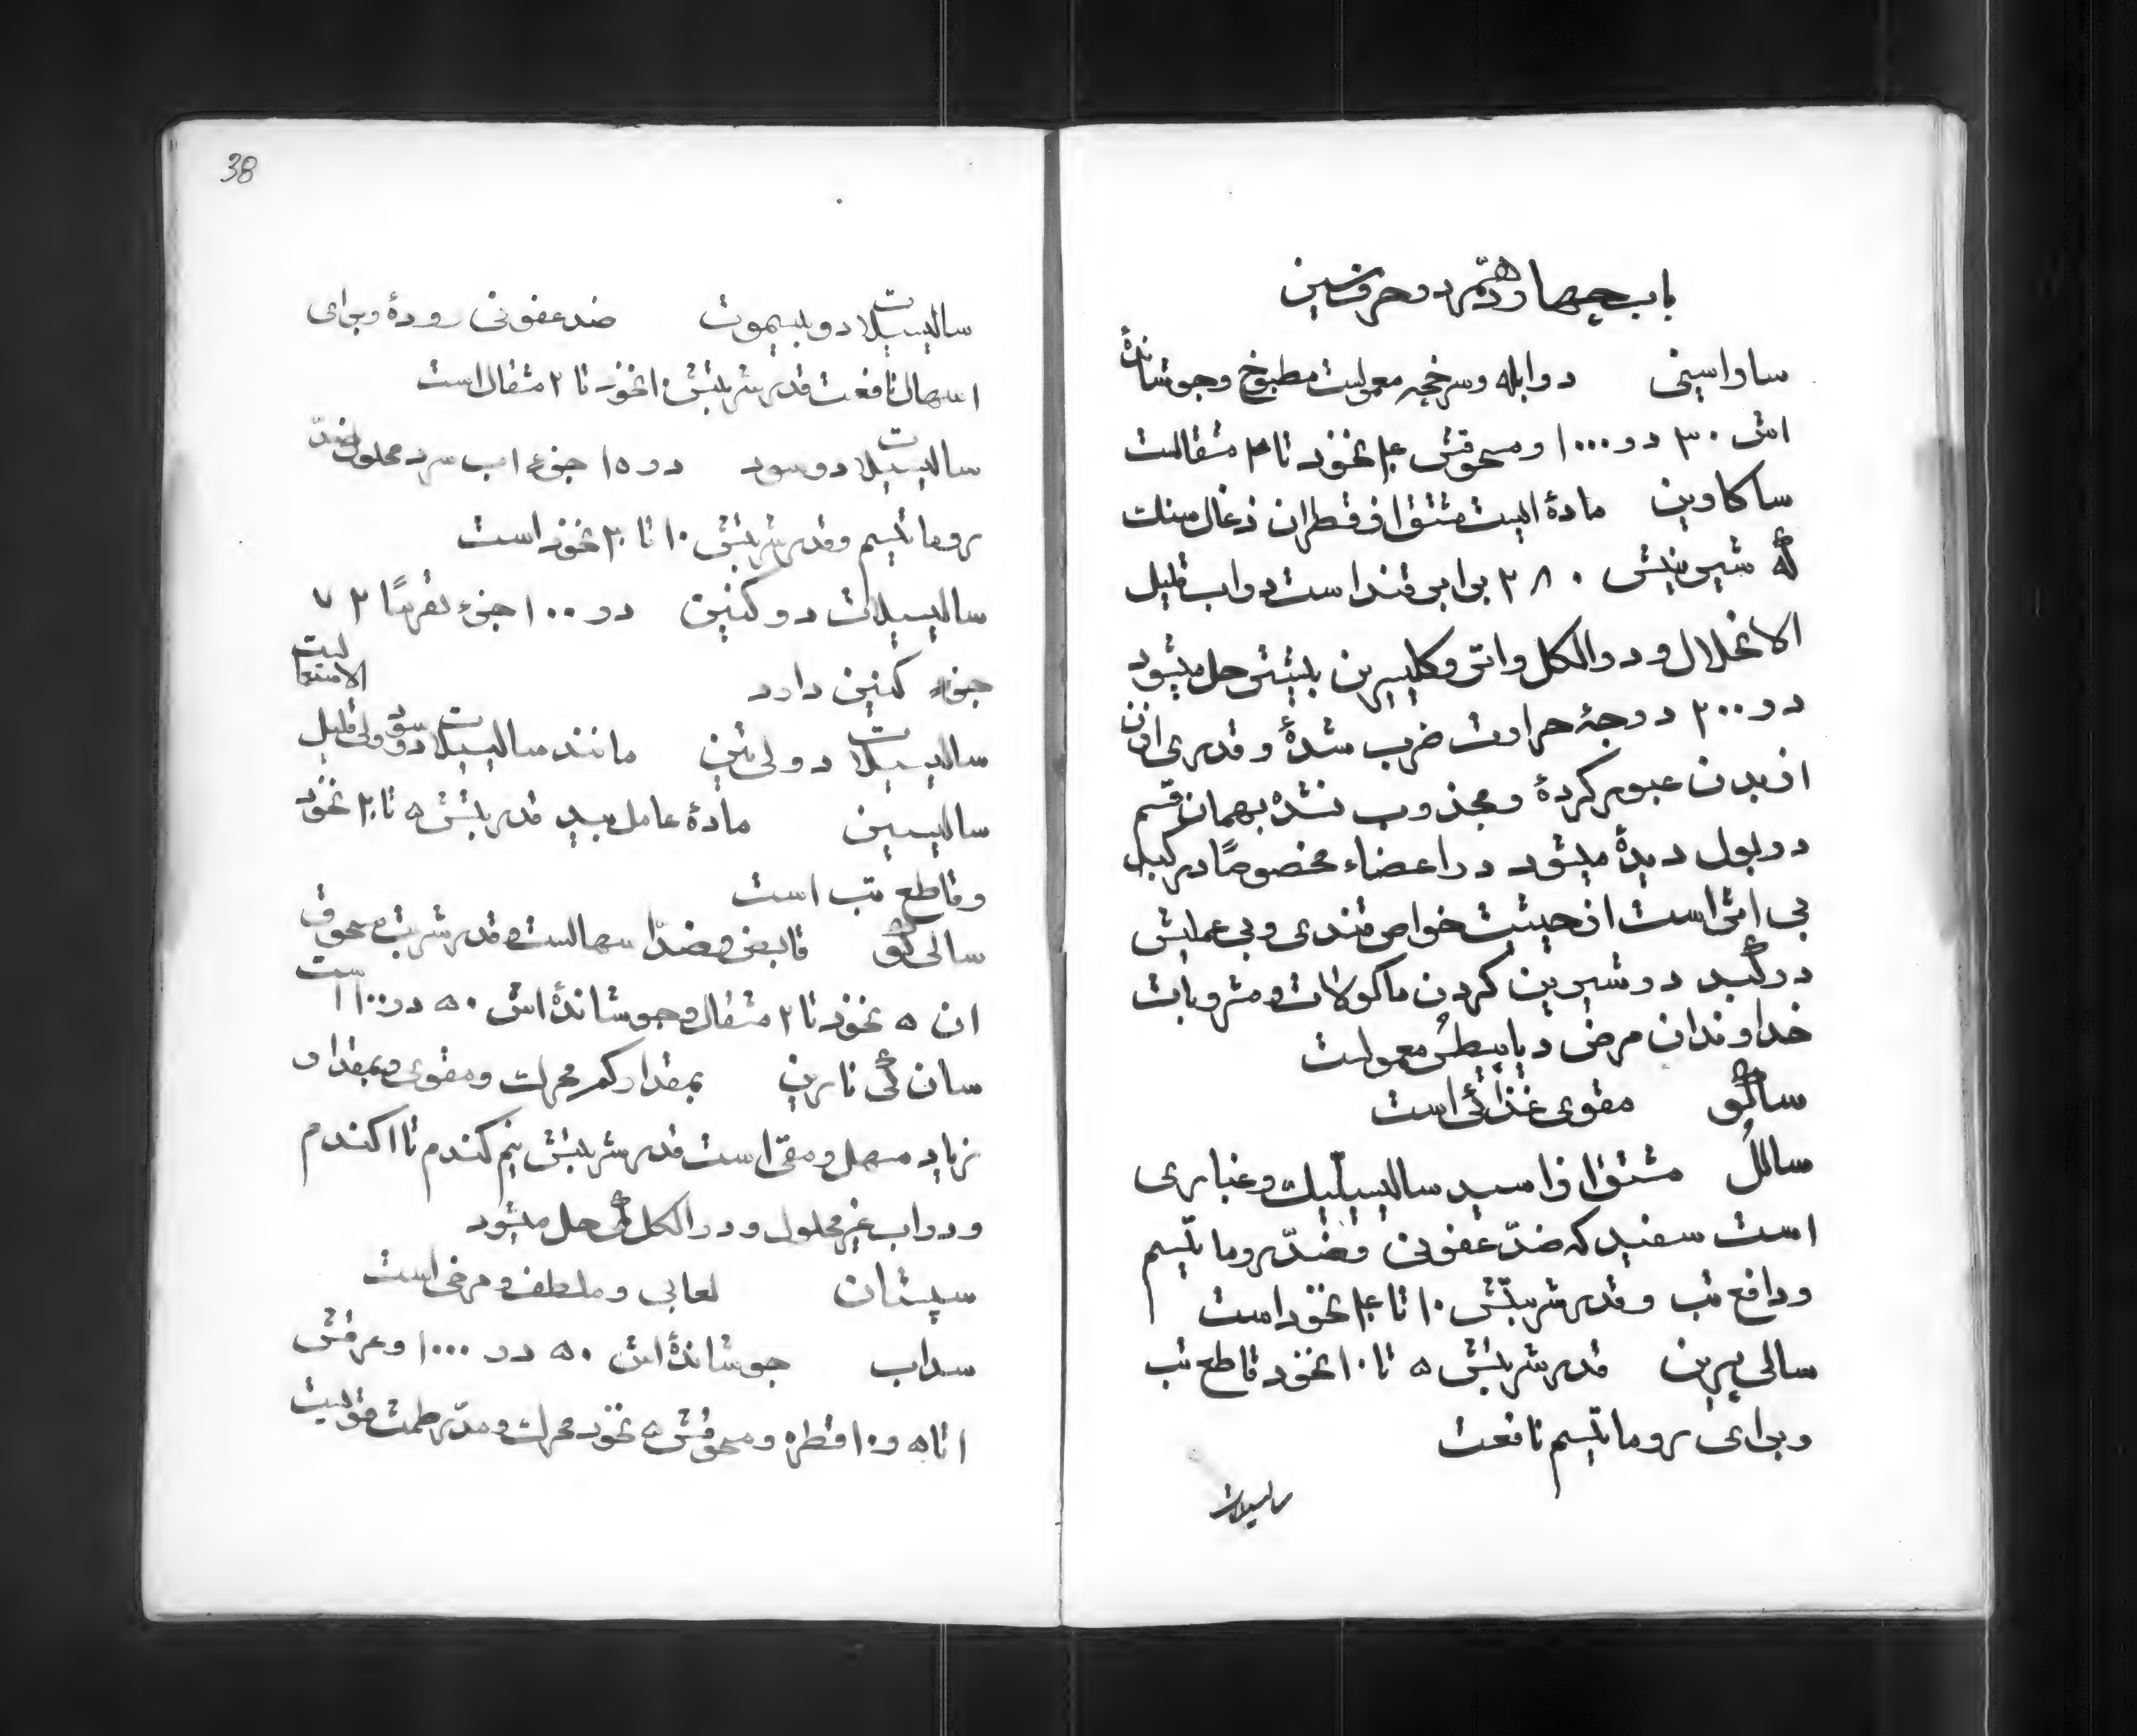 باب چهاردهم در حرف سین
ساراسینی در ابله و سرخجه معمولست مطبوخ و جوشاندۀ
اش ۳۰ در ۱۰۰۰ و مسحوقش ۴ نخود تا ۴ مثقالست
ساکارین مادۀ ایست مشتق از قطران ذغال سنك
که شیرینیش ۲۸۰ برابر قند است در اب قلیل
الانحلال و در الکل و اتر و کلیسیرین بیشتر حل میشود
در ۲۰۰ درجۀ حرارت ضرب شدۀ و قدری ازان
از بدن عبور کردۀ و مجذوب نشده بهمان قسم
در بول دیدۀ میشود در اعضاء مخصوصًا در کبد
بی اثر است از حیثیت خواص قندی و بی عملیش
در کبد در شیرین کردن ماکولات و مشروبات
خداوندان مرض دیابیطس معمولست
ساگو مقوی غذائی است
سالل مشتق از اسید سالیسیلیك و غباری
است سفید که ضدّ عفونی و ضدّ روماتیسم
و دافع تب و قدر شربتش ۱۰ تا ۴۰ نخود است
سالی پیرین قدر شربتش ۵ تا ۱۰ نخود قاطع تب
و برای روماتیسم نافعست
سالیسیلات
38
سالیسیلات دو بیسموت ضد عفونی رودۀ و برای
اسهال نافعست قدر شربتش ۱۰ نخود تا ۲ مثقال است
سالیسیلات دو سود در ۱۵ جزء اب سرد محلول ضدّ
روماتیسم و قدر شربتش ۱۰ تا ۲۰ نخود است
سالیسیلات دو کنین در ۱۰۰ جزء تقریبًا ۷۲
جزء کنین دارد
سالیسیلات دو لی تین مانند سالیسیلات دو سود ولی قلیل الاستعمالیت
سالیسین مادۀ عامل بید قدر شربتش ۵ تا ۲۰ نخود
و قاطع تب است
سالی کر قابض و ضدّ اسهالست و قدر شربت مسحوق
ان ۵ نخود تا ۲ مثقال و جوشاندۀ اش ۵۰ در ۱۰۰۰ است
سان گی نارین بمقدار کم محرك و مقوی و بمقدار
زیاد مسهل و مقیّ است قدر شربتش نیم کندم تا ۱ کندم
و در اب غیر محلول و در الکل حل میشود
سپستان لعابی و ملطف و مرخی است
سداب جوشاندۀ اش ۵۰ در ۱۰۰۰ و عرقش
۱ تا ۵ و ۱۰ قطره و مسحوقش ۵ نخود محرك و مدّر طمث قویست